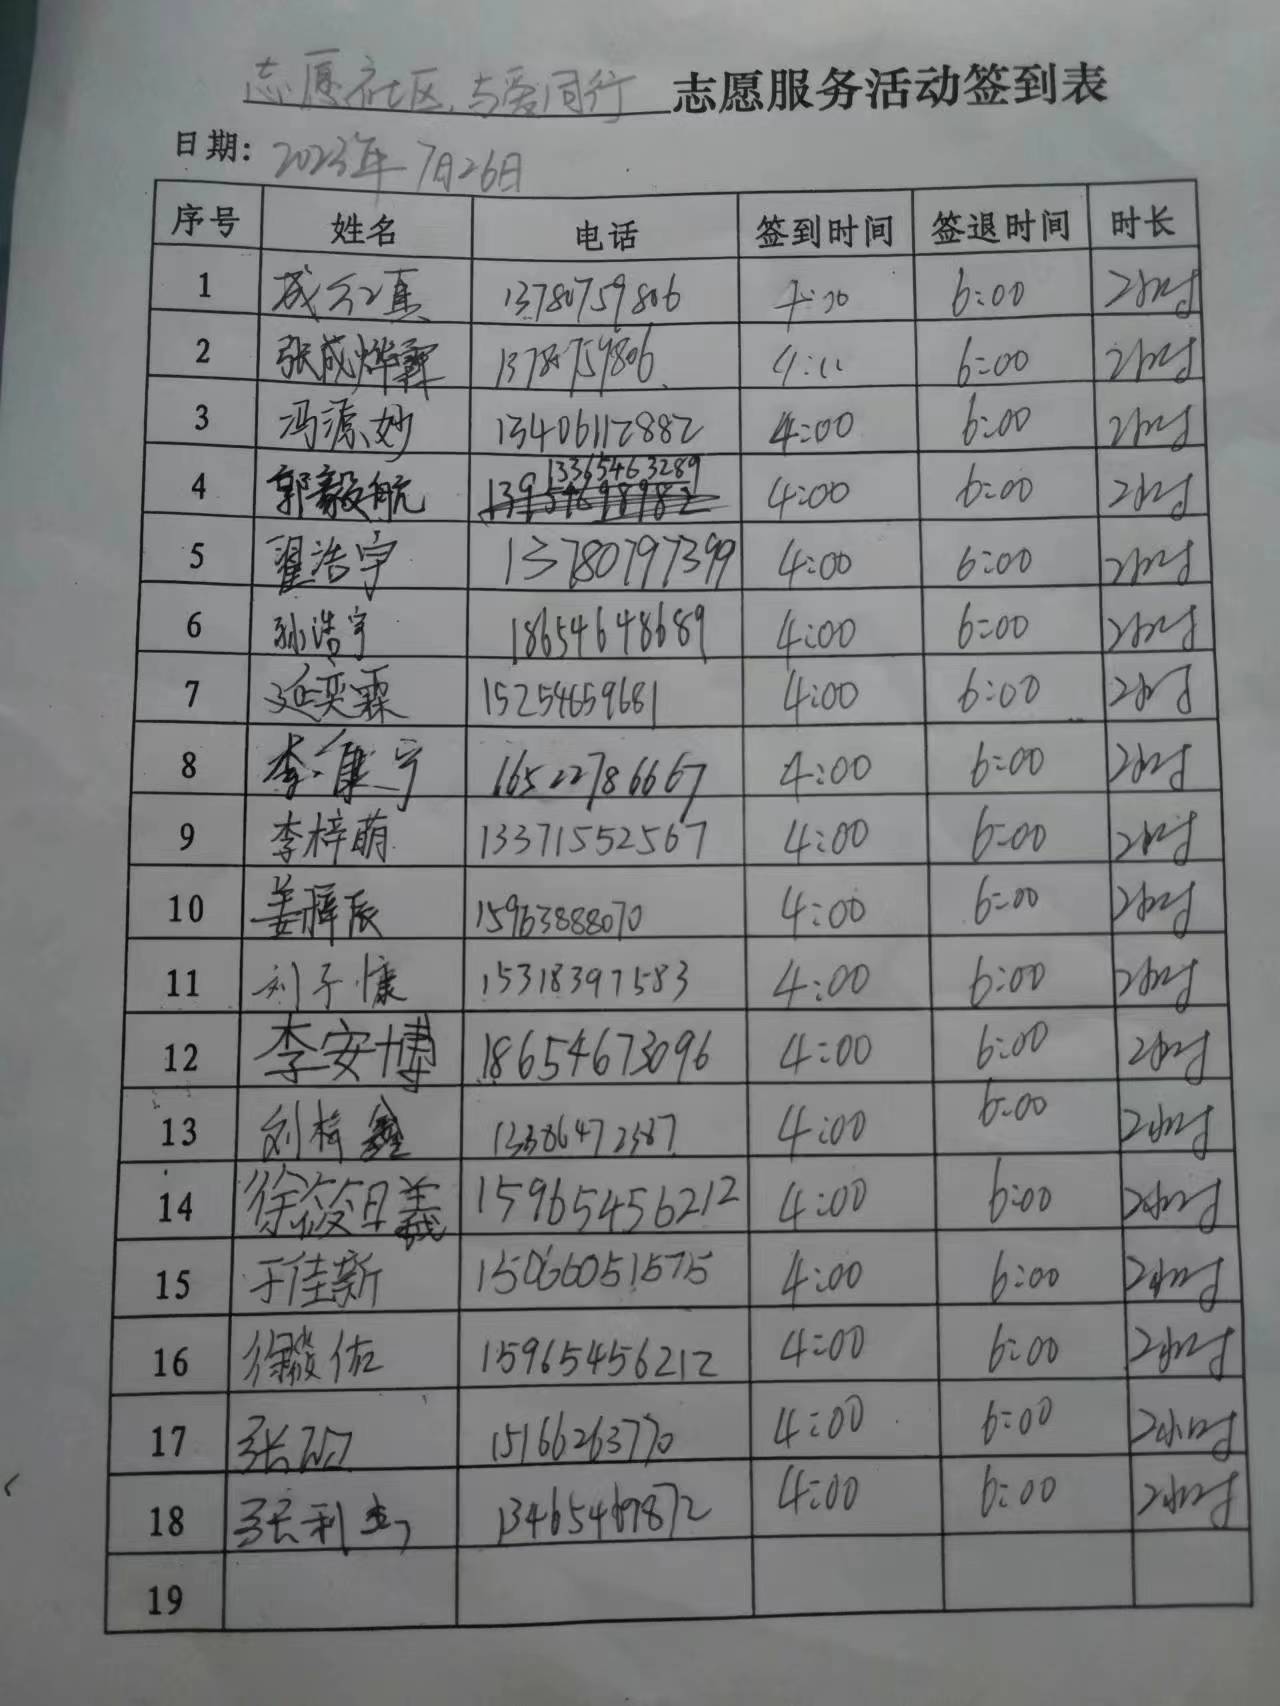 志愿社区,与爱同行 志愿服务活动签到表
日期: 2023年7月26日
序号 姓名 电话 签到时间 签退时间 时长
1 13780759806 6:00 2小时
2 张成烨霖 13780759806 6:00 2小时
3 冯源妙 13406112882 4:00 6:00 2小时
4 郭毅航 13365463289 4:00 6:00 2小时
5 翟浩宇 13780797399 4:00 6:00 2小时
6 孙浩宇 18654648689 4:00 6:00 2小时
7 延奕霖 15254659681 4:00 6:00 2小时
8 李隼宁 16522786667 4:00 6:00 2小时
9 李梓萌 13371552567 4:00 6:00 2小时
10 姜梓辰 15963888070 4:00 6:00 2小时
11 刘子慷 15318397583 4:00 6:00 2小时
12 李安博 18654673096 4:00 6:00 2小时
13 刘梓鑫 13386472387 4:00 6:00 2小时
14 15965456212 4:00 6:00 2小时
15 于佳新 15066051575 4:00 6:00 2小时
16 徐骏佑 15965456212 4:00 6:00 2小时
17 张砚 15166263770 4:00 6:00 2小时
18 张利 13465469872 4:00 6:00 2小时
19